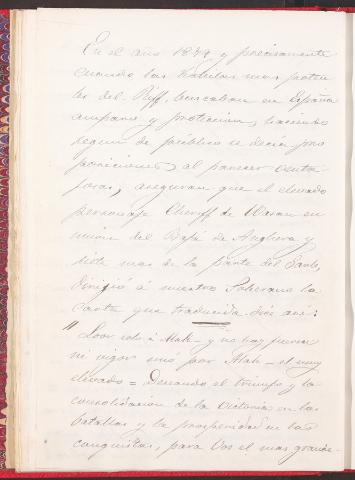 En el año 1879 y precisamente
cuando las Kabilas mas potentes
del Riff, buscaban en España
amparo y proteccion, haciendo
segun de público se decia pro
posiciones al parecer venta
josas, aseguran que el elevado
personaje Cheriff de Wasan en
union del Bajá de Anghera y
siete mas de la parte del Sarts,
dirigió á nuestro Soberano la
carta que traducida dice asi:
"Loor solo á Alah - y no hay fuerza
ni vigor sinó por Alah - el muy
elevado = Deseando el triunfo y la
consolidacion de la victoria en las
batallas y la prosperidad en las
conquistas, para Vos el mas grande